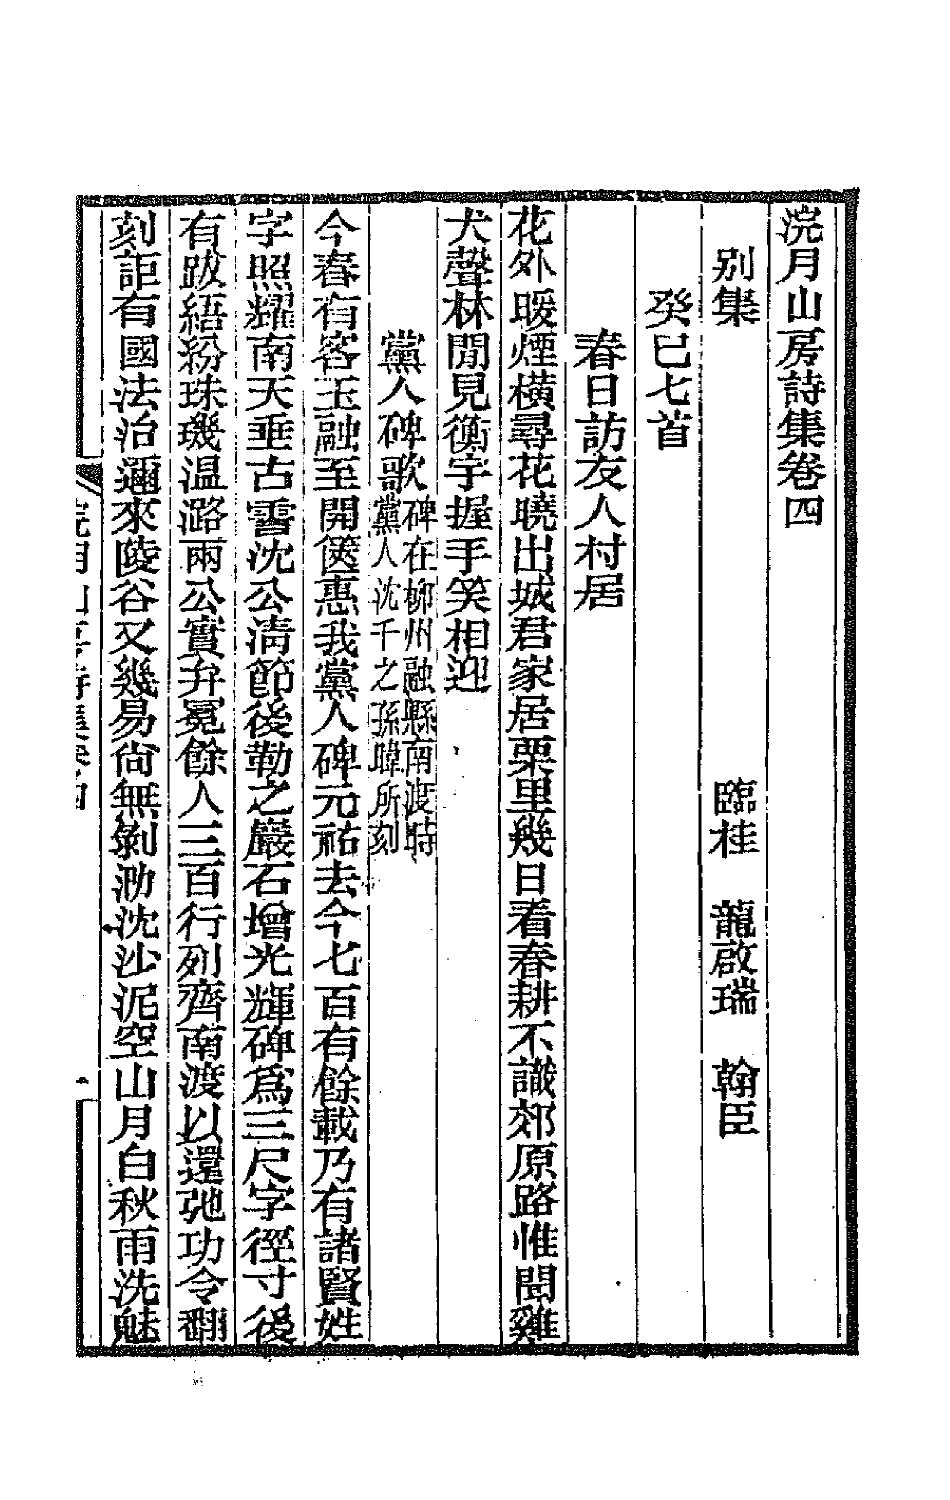 浣月山房詩集卷四
別集　臨桂　龍啟瑞　翰臣
癸已七首
春日訪友人村居
花外暖煙橫尋花曉出城君家居栗里幾日看春耕不識郊原路惟聞雞
犬聲林閒見衡宇握手笑相迎
黨人碑歌碑在柳州融縣南渡時
黨人沈千之孫暐所刻
今春有客玉融至開篋惠我黨人碑元祐去今七百有餘載乃有諸賢姓
字照耀南天垂古霅沈公淸節後勒之巖石增光輝碑爲三尺字徑寸後
有跋繙紛珠璣温潞兩公實弁冕餘人三百行列齊南渡以還弛功令翻
刻詎有國法治邇來陵谷又幾易尙無剝泐沈沙泥空山月白秋雨洗魅